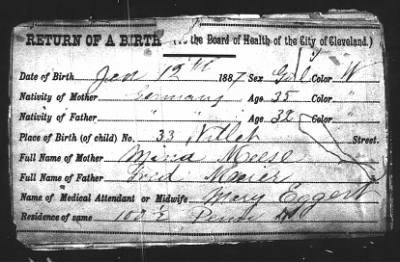 RETURN OF A BIRTH (To the Board of Health of the City of Cleveland.)
Date of Birth Jan 12th 1887 Sex Girl Color W
Nativity of Mother Germany Age 35 Color "
Nativity of Father " " Age 32 Color "
Place of Birth (of child) No. 33 Street.
Full Name of Mother Mina Meese
Full Name of Father Fred
Name of Medical Attendant or Midwife Mary Eggert
Residence of same 107 1/2